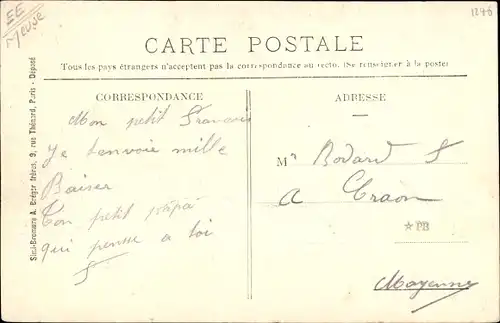 EE
Meuse
1246
CARTE POSTALE
Tous les pays étrangers n'acceptent pas la correspondance au recto. (Se renseigner à la poste)
CORRESPONDANCE
Mon petit Francois
Je t'envoie mille
Baiser
Ton petit papa
qui pense a toi
S
ADRESSE
Mr Bodard S
A Craon
★PB
Mayenne
Simi-Bromure A. Bréger frères, 9, rue Thénard, Paris - Déposé